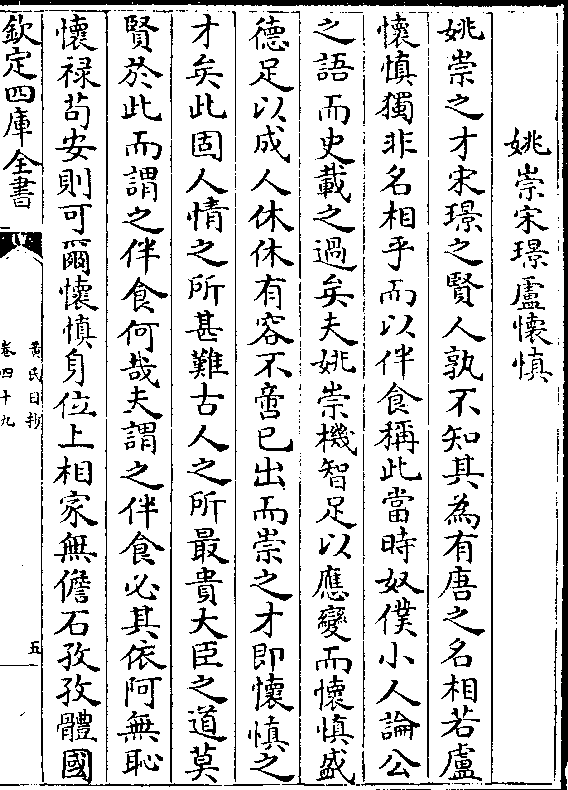 姚崇宋璟盧懷慎
姚崇之才宋璟之賢人孰不知其為有唐之名相若盧
懷慎獨非名相乎而以伴食稱此當時奴僕小人論公
之語而史載之過矣夫姚崇機智足以應變而懷慎盛
德足以成人休休有容不啻已出而崇之才即懷慎之
才矣此固人情之所甚難古人之所最貴大臣之道莫
賢於此而謂之伴食何哉夫謂之伴食必其依阿無恥
懷禄茍安則可爾懷慎身位上相家無儋石孜孜體國
欽定四庫全書
黄氏日抄
卷四十九
五